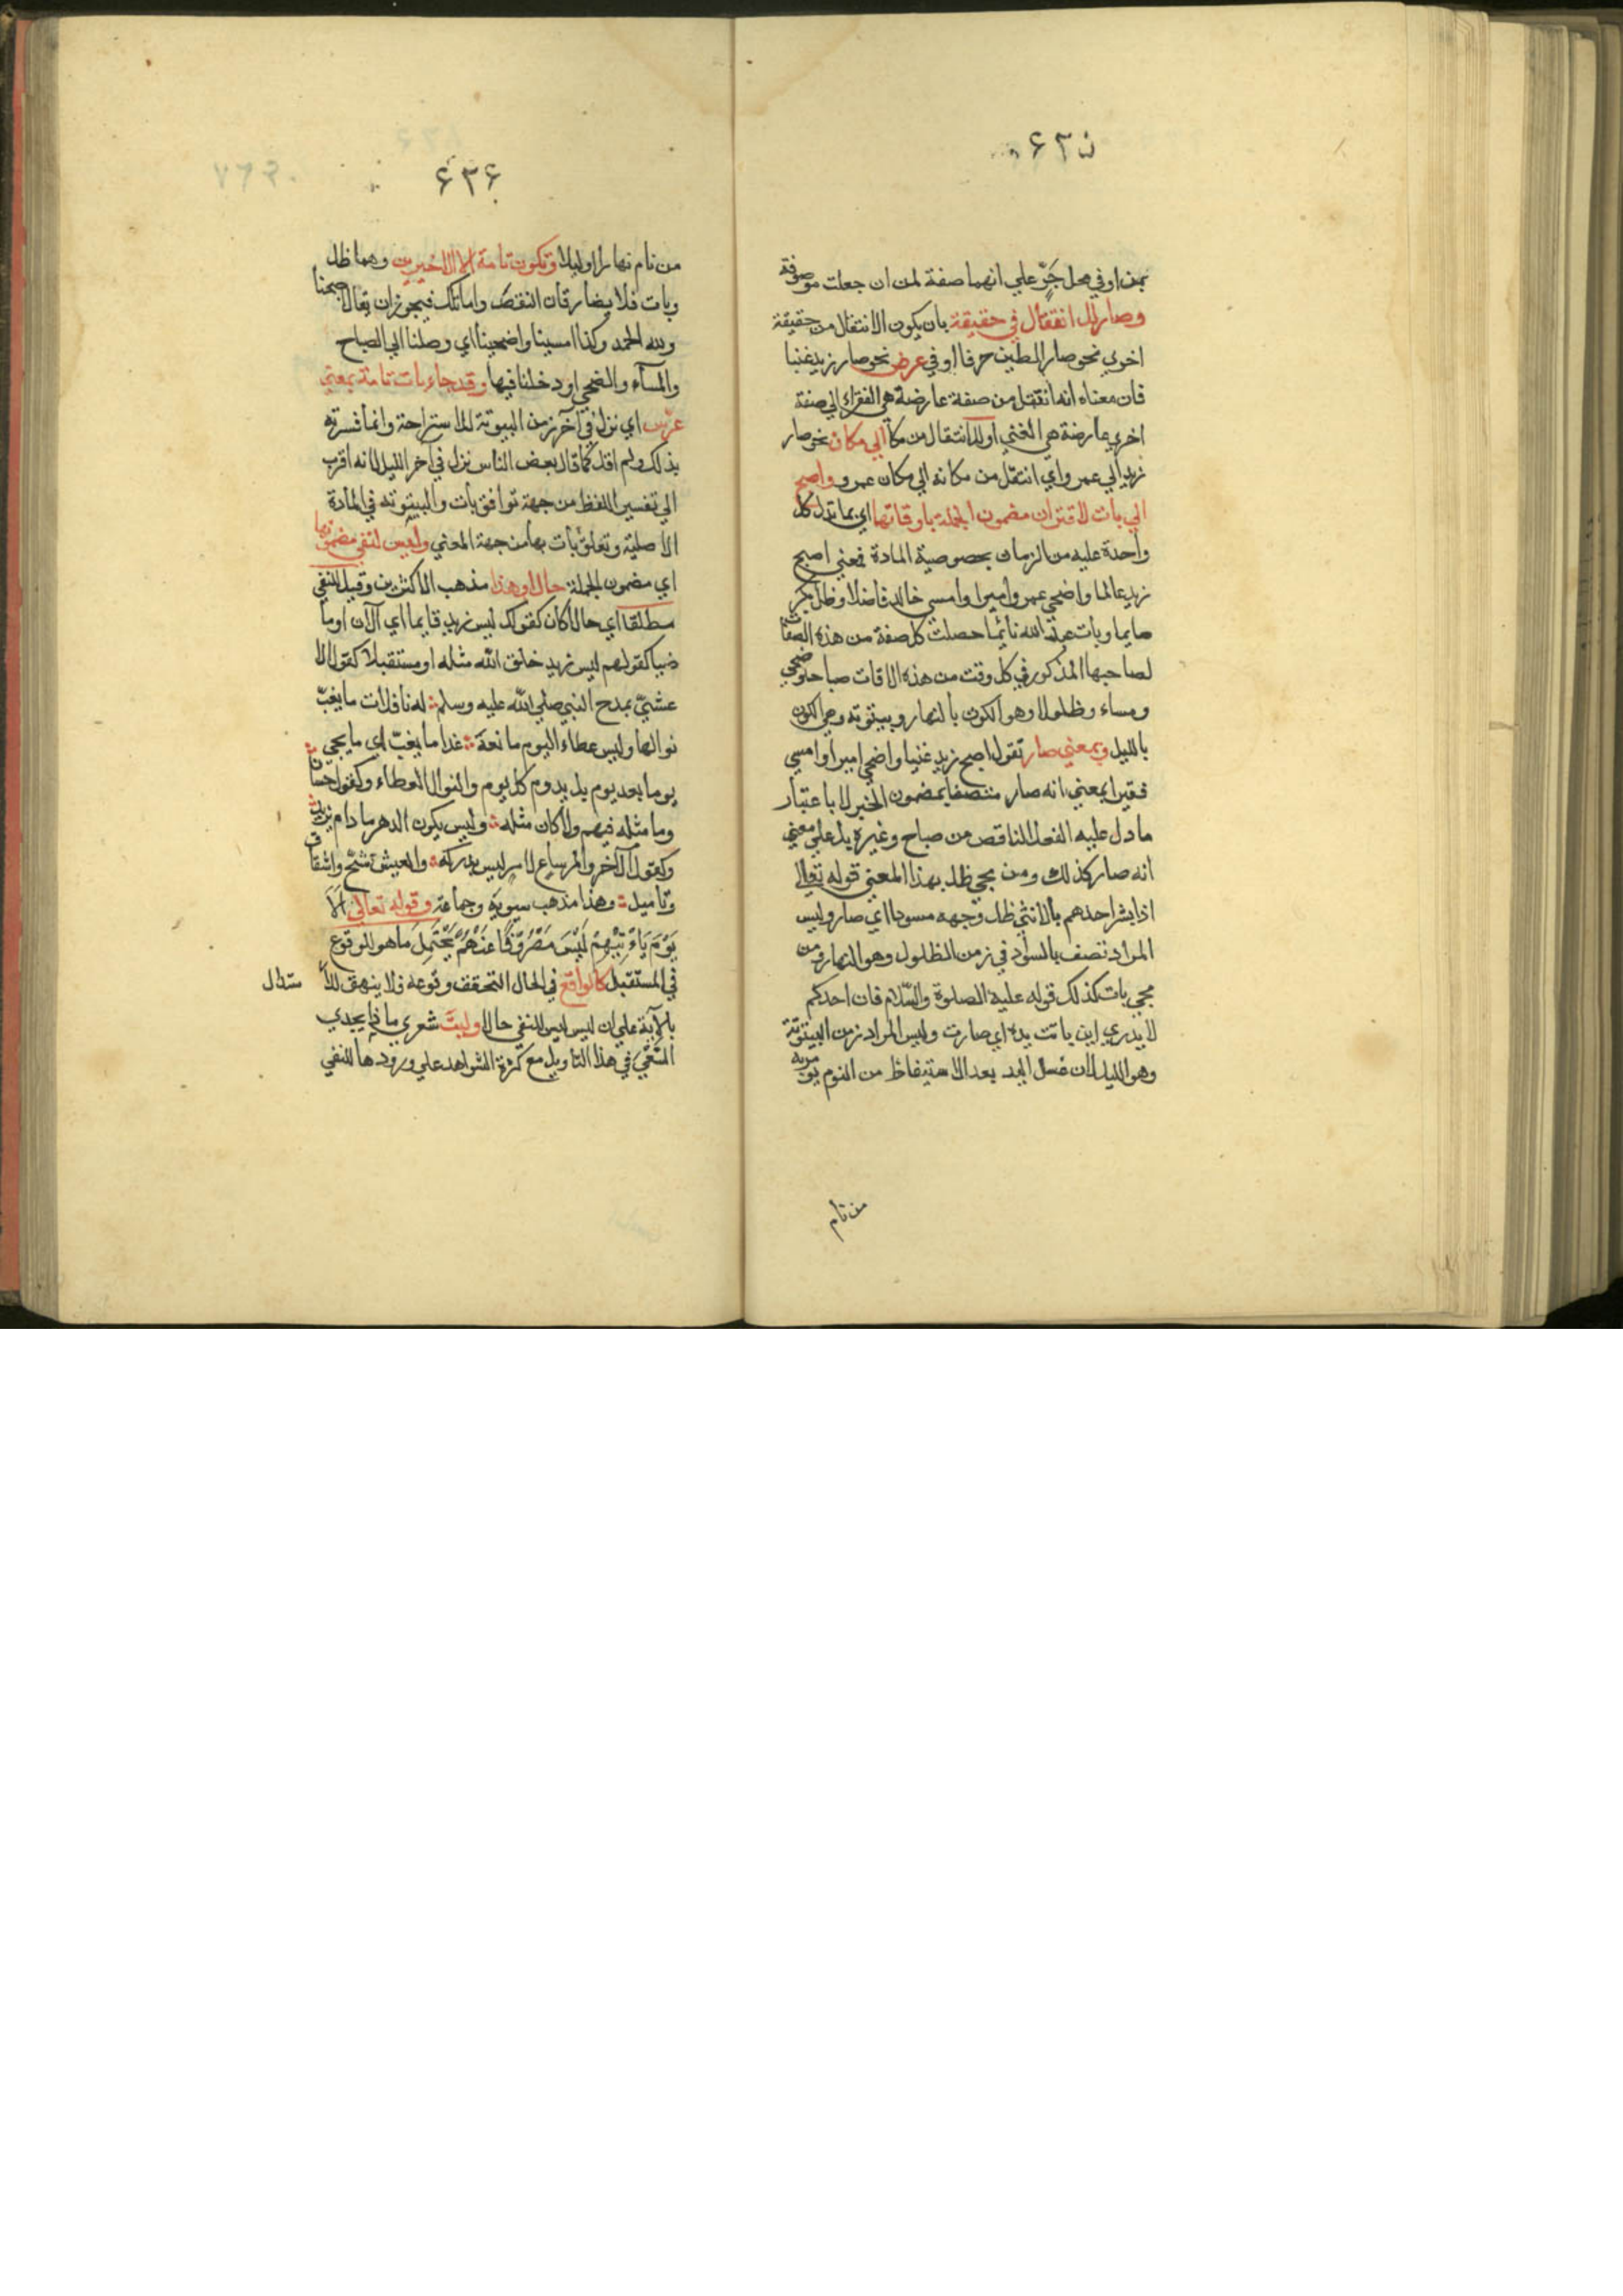 بمن او في محل جرّ علي انهما صفة لمن ان جعلت موصوفة
وصار للانتقال في حقيقة بان يكون الانتقال من حقيقة
اخري نحو صار الطين خزفا او في عرض نحو صار زيد غنيا
فان معناه انه انتقل من صفة عارضة هي الفقر الي صفة
اخري عارضة هي الغني او للانتقال من مكان الي مكان نحو صار
زيد الي عمرو اي انتقل من مكانه الي مكان عمرو واصبح
الي بات لاقتران مضمون الجملة باوقاتها اي بما تدل كل
واحدة عليه من الزمان بخصوصية المادة فمعني اصبح
زيد عالما واضحي عمرو اميرا وامسي خالد فاضلا وظل بكر
صايما وبات عبد الله نائما حصلت كل صفة من هذه الصفات
لصاحبها المذكور في كل وقت من هذه الاقات صباحا وضحي
ومساء وظلولا وهو الكون بالنهار وبيتوته وهي الكون
بالليل وبمعني صار تقول اصبح زيد غنيا واضحي اميرا وامسي
فقيرا بمعني انه صار متصفا بمضمون الخبر لا باعتبار
ما دل عليه الفعل الناقص من صباح وغيره بل علي معني
انه صار كذلك ومن مجي ظل بهذا المعني قوله تعالي
اذا بشر احدهم بالانثي ظل وجهه مسودا اي صار وليس
المراد تصف بالسواد في زمن الظلول وهو النهار ومن
مجي بات كذلك قوله عليه الصلوة والسّلام فان احدكم
لا يدري اين باتت يده اي صارت وليس المراد زمن البيتوتة
وهو الليل لان غسل اليد بعد الاستيقاظ من النوم يومر به
من نام
٤٣٤
من نام نهارا او ليلا وتكون تامة الا الاخيرين وهما ظل
وبات فلا يضارقان النقص واما تلك فيجوز ان يقال اصبحنا
ولله الحمد وكذا امسينا واضحينا اي وصلنا الي الصباح
والمسآء والضحي او دخلنا فيها وقد جاء بات تامة بمعني
عرّس اي نزل في آخر زمن البيوتة للاستراحة وانما فسرته
بذلك ولم اقل كما قال بعض الناس نزل في آخر الليل لانه اقرب
الي تفسير اللفظ من جهة توافق بات والبيتوته في المادة
الاصلية وتعلق بات بها من جهة المعني وليس لنفي مضمونها
اي مضمون الجملة حالا وهذا مذهب الاكثرين وقيل للنفي
مطلقا اي حالا كان كقولك ليس زيد قايما اي الآن او ما
ضيا كقولهم ليس زيد خلق الله مثله او مستقبلا كقول الا
عشيّ بمدح النبي صلي الله عليه وسلم له نافلات ما يغبّ
نوالها وليس عطاء اليوم مانعة غدا ما يغبّ اي ما يجي
يوما بعد يوم بل يدوم كل يوم والنوال العطاء وكقول حسان
وما مثله فيهم ولا كان مثله وليس يكون الدهر ما دام يذبل
وكقول الآخر والمرساع لامر ليس يدركه والعيش شحّ واشفاق
وتاميل وهذا مذهب سيبويه وجماعة وقوله تعالي ألَا
يَوْمَ يَاءْتِيْهِمْ لَيْسَ مَصْرُوْفًا عَنْهُمْ يَحْتَمِل ما هو للوقوع
في المستقبل كالواقع في الحال التحقف وقوعه فلا ينهق للاستدلال
بالآية علي ان ليس ليس للنفي حالا وليت شعري ماذا يجدي
المتّقي في هذا التاويل مع كثرة الشواهد علي ورودها للنفي